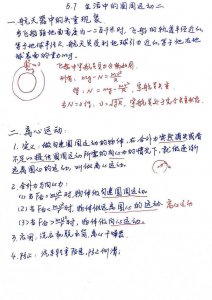 5.7 生活中的圆周运动二
一.航天器中的失重现象
当飞船距地面高度为一二百千米时,飞船的轨道半径近似
等于地球半径R,航天员受到地球引力近似等于他在地
球表面的重力mg
飞船中宇航员受力分析如图
列情: mg-N=mv²/R
∴ N=mg-mv²/R
当N=0时, v=√gR,宇航员处于完全失重状态
二.离心运动
1.定义:做匀速圆周运动的物体,在合外力突然消失或者
不足以提供圆周运动所需的向心力的情况下,就做逐渐
远离圆心的运动,叫做离心运动。
2.合外力与向心力:
(1)当F合=mv²/r时,物体做匀速圆周运动
(2)当F合<mv²/r时,物体做远离圆心的运动 离心运动
(3)当F合>mv²/r时,物体做向心运动
3.应用:洗衣机脱水筒 离心干燥器
4.防止:汽车转弯限速,防止侧滑;